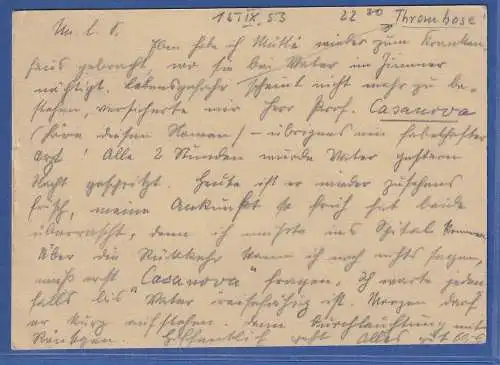 16 IX. 53 22 30 Thrombose!
M. l. V.
Eben habe ich Mutti wieder zum Kranken-
haus gebracht, wo sie bei Vater im Zimmer
nächtigt. Lebensgefahr scheint nicht mehr zu be-
stehen, versicherte mir Herr Prof. Casanova
(höre diesen Namen) – übrigens ein fabelhafter
Arzt! Alle 2 Stunden wurde Vater gestern
Nacht gespritzt. Heute ist er wieder zusehens
frisch, meine Ankunft so früh hat beide
überrascht, denn ich mußte ins Spital kommen.
Über die Rückkehr kann ich noch nichts sagen,
muß erst "Casanova" fragen. Ich warte jeden-
falls bis Vater reisefähig ist. Morgen darf
er kurz aufstehen. dann Durchleuchtung mit
Röntgen. Hoffentlich geht Alles gut